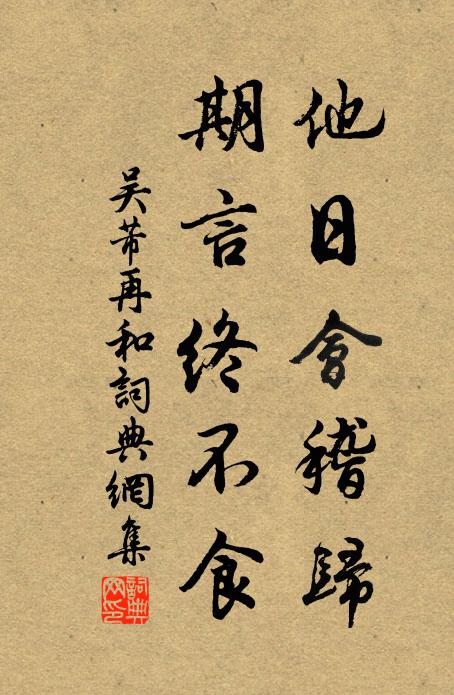 他日會稽歸
期言終不食
吴芾再和詞典網集
詞典网印